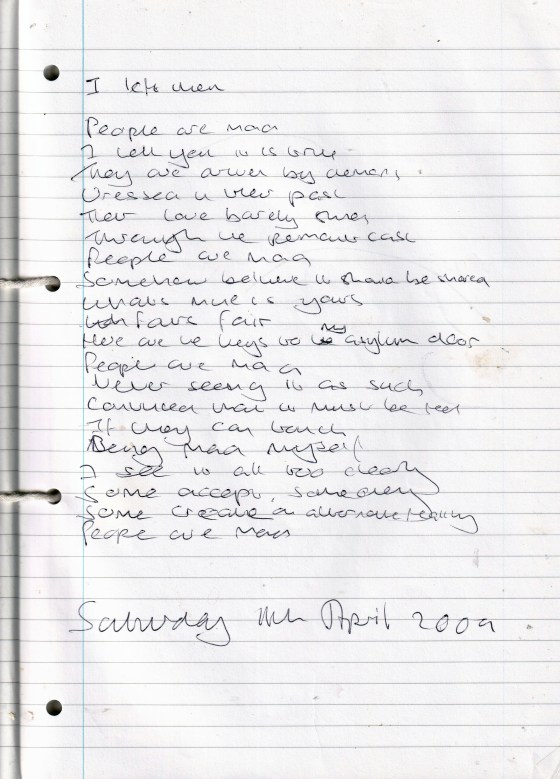 I
People are mad
I tell you it is true
They are driven by demons,
Dressed in their past
Their love barely shines
Through the remains cast
People are mad
Somehow believe it should be shared
Whats mine is yours
Fairs fair
Here are the keys to my asylum door
People are mad
Never seeing it as such
Convinced that it must be real
If they can touch
Being mad myself
I see it all too clearly
Some accept, some deny
Some create a alternate reality
People are mad
Saturday 11th April 2009